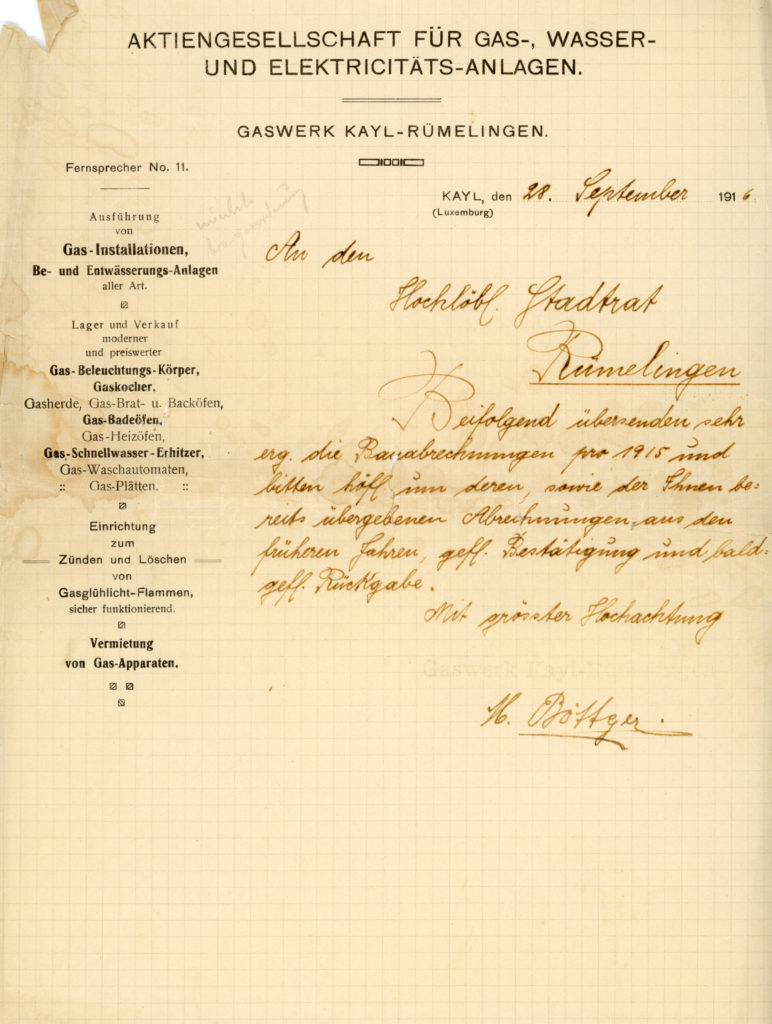 AKTIENGESELLSCHAFT FÜR GAS-, WASSER-
UND ELEKTRICITÄTS-ANLAGEN.
GASWERK KAYL-RÜMELINGEN.
Fernsprecher No. 11.
KAYL, den 28. September 1916.
(Luxemburg)
Ausführung
von
Gas-Installationen,
Be- und Entwässerungs-Anlagen
aller Art.
Lager und Verkauf
moderner
und preiswerter
Gas-Beleuchtungs-Körper,
Gaskocher,
Gasherde, Gas-Brat- u. Backöfen,
Gas-Badeöfen,
Gas-Heizöfen,
Gas-Schnellwasser-Erhitzer,
Gas-Waschautomaten,
:: Gas-Plätten. ::
Einrichtung
zum
Zünden und Löschen
von
Gasglühlicht-Flammen,
sicher funktionierend.
Vermietung
von Gas-Apparaten.
An den
Hochlöbl. Stadtrat
Rümelingen
Beifolgend übersenden sehr
erg. die Bauabrechnungen pro 1915 und
bitten höfl. um deren, sowie der Ihnen be-
reits übergebenen Abrechnungen aus den
früheren Jahren, gefl. Bestätigung und bald-
gefl. Rückgabe.
Mit grösster Hochachtung
Gaswerk Kayl-
M. Böttger.